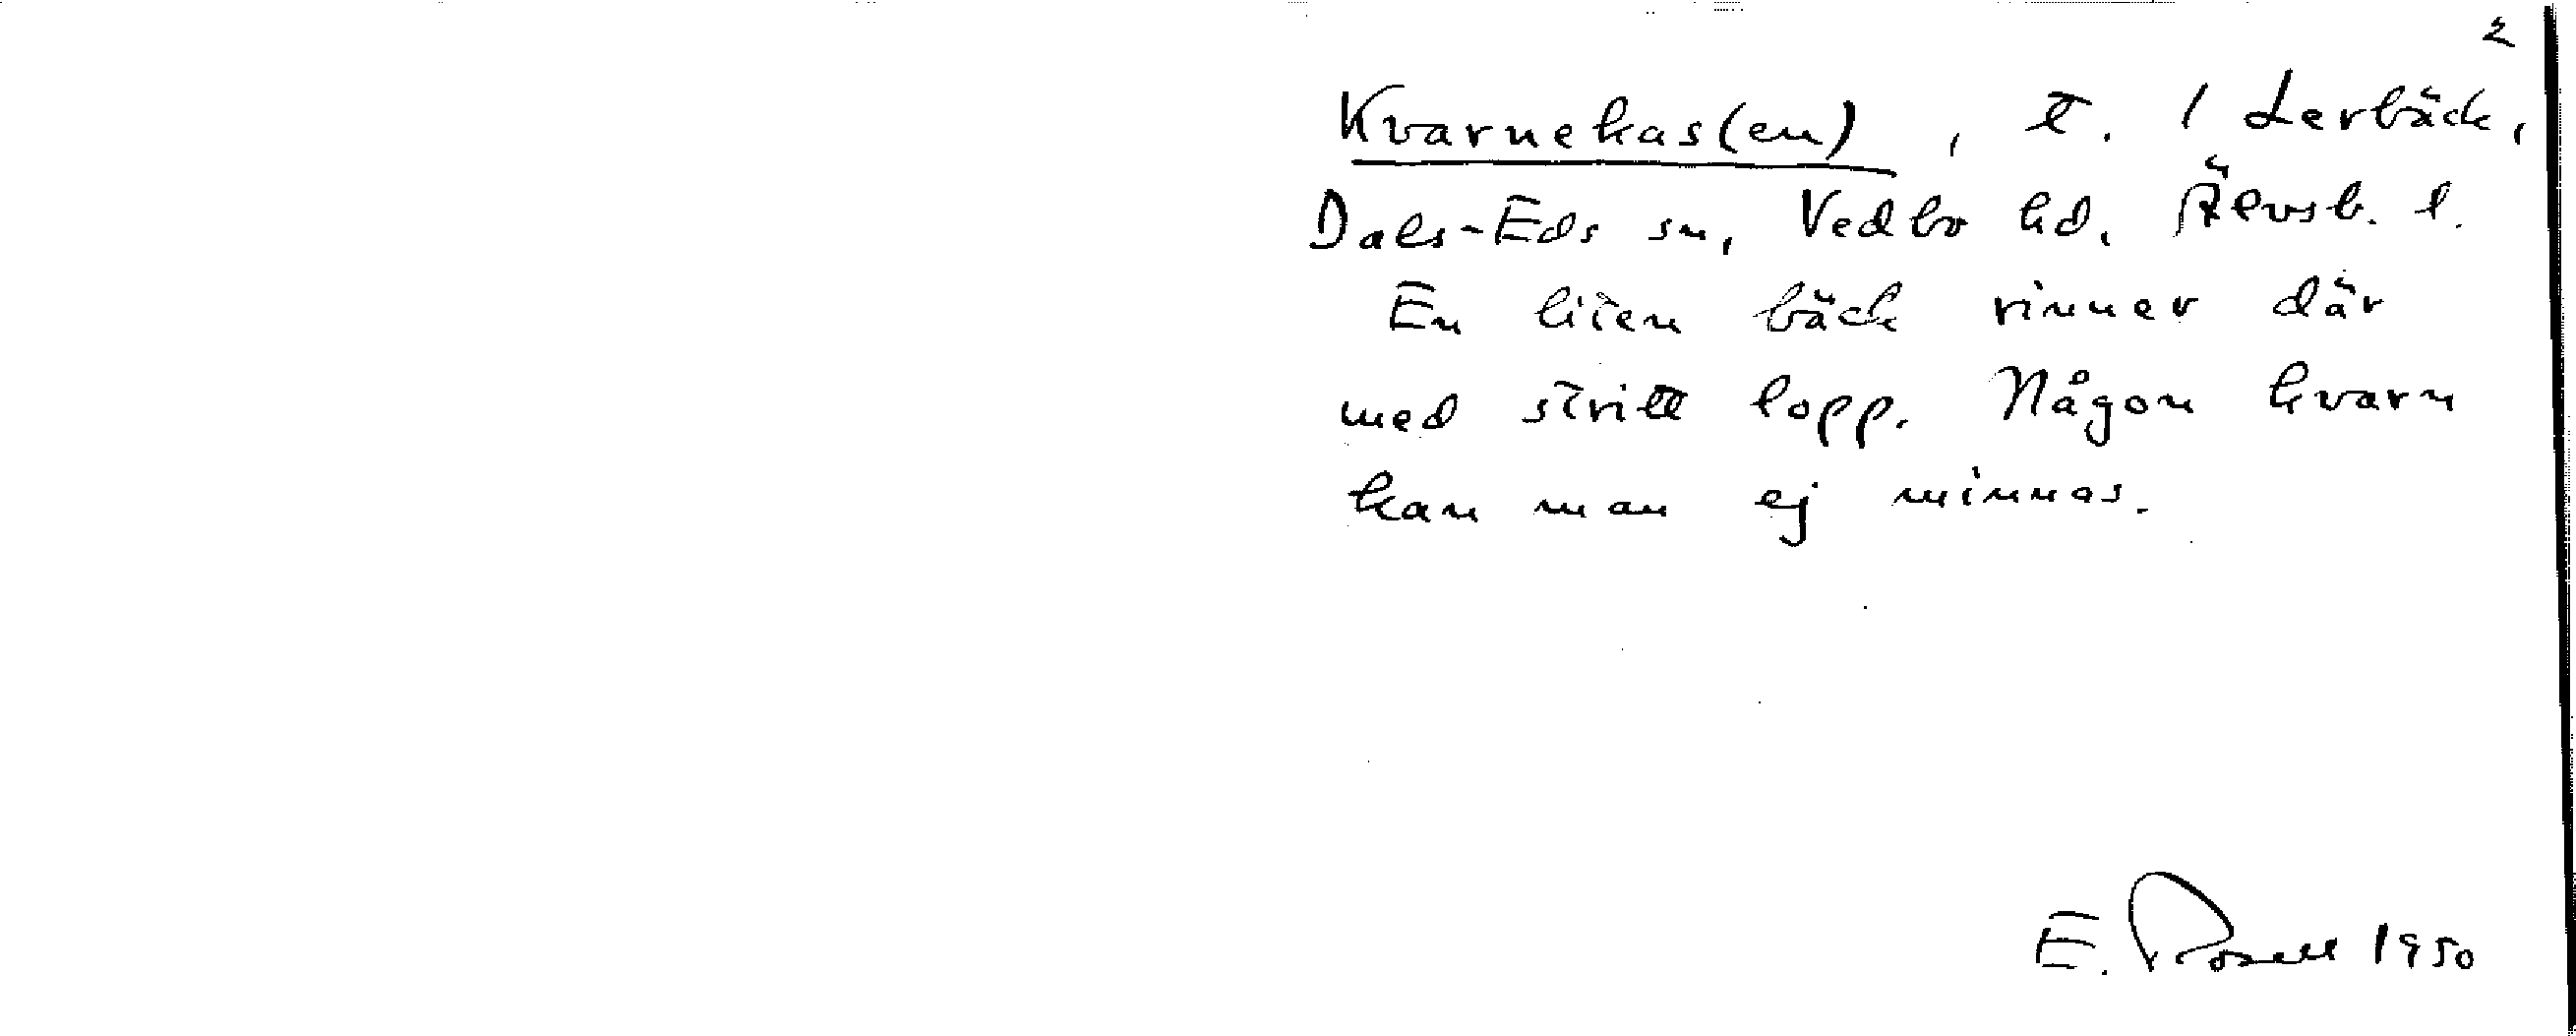 2
Kvarnekas(en), t. 1 Lerbäck,
Dals-Eds sn, Vedbo hd. Älvsb. l.
En liten bäck rinner där
med stritt lopp. Någon kvarn
kan man ej minnas.
E. Rosell 1950